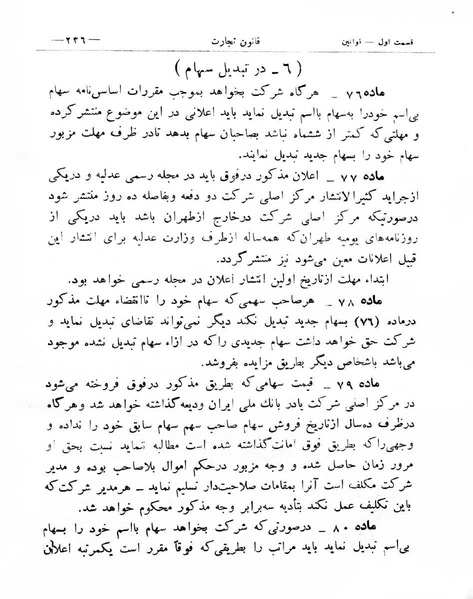 قسمت اول — قوانین
قانون تجارت
—۲۳۶—
( ۶ ـ در تبدیل سهام )
ماده ۷۶ ـ هرگاه شرکت بخواهد بموجب مقررات اساسی‌نامه سهام
بی‌اسم خودرا به‌سهام بااسم تبدیل نماید باید اعلانی در این موضوع منتشرکرده
و مهلتی‌که کمتر از ششماه نباشد بصاحبان سهام بدهد تادر ظرف مهلت مزبور
سهام خود را بسهام جدید تبدیل نمایند.
ماده ۷۷ ـ اعلان مذکور درفوق باید در مجله رسمی عدلیه و دریکی
ازجراید کثیرالانتشار مرکز اصلی شرکت دو دفعه وبفاصله ده روز منتشر شود
درصورتیکه مرکز اصلی شرکت درخارج ازطهران باشد باید دریکی از
روزنامه‌های یومیه طهران‌که همه‌ساله ازطرف وزارت عدلیه برای انتشار این
قبیل اعلانات معین می‌شود نیز منتشرگردد.
ابتداء مهلت ازتاریخ اولین انتشار اعلان در مجله رسمی خواهد بود.
ماده ۷۸ ـ هرصاحب سهمی‌که سهام خود را تاانقضاء مهلت مذکور
درماده (۷۶) بسهام جدید تبدیل نکند دیگر نمی‌تواند تقاضای تبدیل نماید و
شرکت حق خواهد داشت سهام جدیدی راکه در ازاء سهام تبدیل نشده موجود
می‌باشد باشخاص دیگر بطریق مزایده بفروشد.
ماده ۷۹ ـ قیمت سهامی‌که بطریق مذکور درفوق فروخته می‌شود
در مرکز اصلی شرکت یادر بانك ملی ایران ودیعه‌گذاشته خواهد شد وهرگاه
درظرف ده‌سال ازتاریخ فروش سهام صاحب سهم سهام سابق خود را نداده و
وجهی‌راکه بطریق فوق امانت‌گذاشته شده است مطالبه ننماید نسبت بحق او
مرور زمان حاصل شده و وجه مزبور درحکم اموال بلاصاحب بوده و مدیر
شرکت مکلف است آنرا بمقامات صلاحیت‌دار تسلیم نماید ـ هرمدیر شرکت‌که
باین تکلیف عمل نکند بتأدیه سه‌برابر وجه مذکور محکوم خواهد شد.
ماده ۸۰ ـ درصورتی‌که شرکت بخواهد سهام بااسم خود را بسهام
بی‌اسم تبدیل نماید باید مراتب را بطریقی‌که فوقاً مقرر است یکمرتبه اعلان